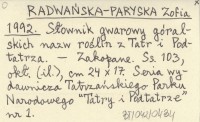 RADWAŃSKA-PARYSKA Zofia
1992. Słownik gwarowy góral-
skich nazw roślin z Tatr i Pod-
tatrza. — Zakopane. Ss. 103,
okł. (il.), cm 24 x 17. Seria wy-
dawnicza Tatrzańskiego Parku
Narodowego "Tatry i Podtatrze"
nr 1.